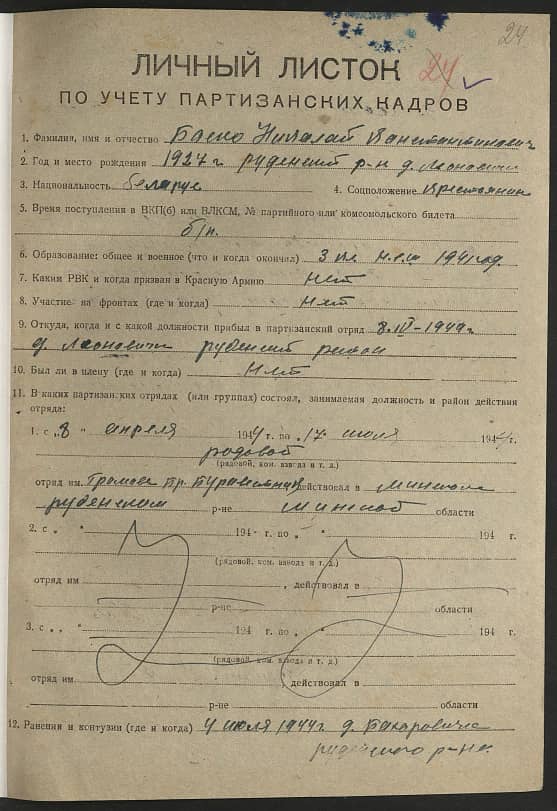 24
ЛИЧНЫЙ ЛИСТОК 24
ПО УЧЕТУ ПАРТИЗАНСКИХ КАДРОВ
1. Фамилия, имя и отчество Николай Константинович
2. Год и место рождения 1927 г руденский р-н д.
3. Национальность беларус 4. Соцположение крестьянин
5. Время поступления в ВКП(б) или ВЛКСМ, № партийного или комсомольского билета
б/п.
6. Образование: общее и военное (что и когда окончил) 3 кл. 1941 год.
7. Каким РВК и когда призван в Красную Армию Нет
8. Участие на фронтах (где и когда) Нет
9. Откуда, когда и с какой должности прибыл в партизанский отряд 8.IV-1944 г.
д. руденский район
10. Был ли в плену (где и когда) Нет
11. В каких партизанских отрядах (или группах) состоял, занимаемая должность и район действия
отряда:
1. с „8 " апреля 1944 г. по „17 июля 1944 г.
родовой
(рядовой, ком. взвода и т. д.)
отряд им. Громова действовал в
руденском р-не минской области
2. с „ " 194 г. по „ " 194 г.
(рядовой, ком. взвода и т. д.)
отряд им , действовал в
р-не области
3. с „ " 194 г. по „ " 194 г.
(рядовой, ком. взвода и т. д.)
отряд им. действовал в
р-не области
12. Ранения и контузии (где и когда) 4 июля 1944 г д.
руденского р-на.